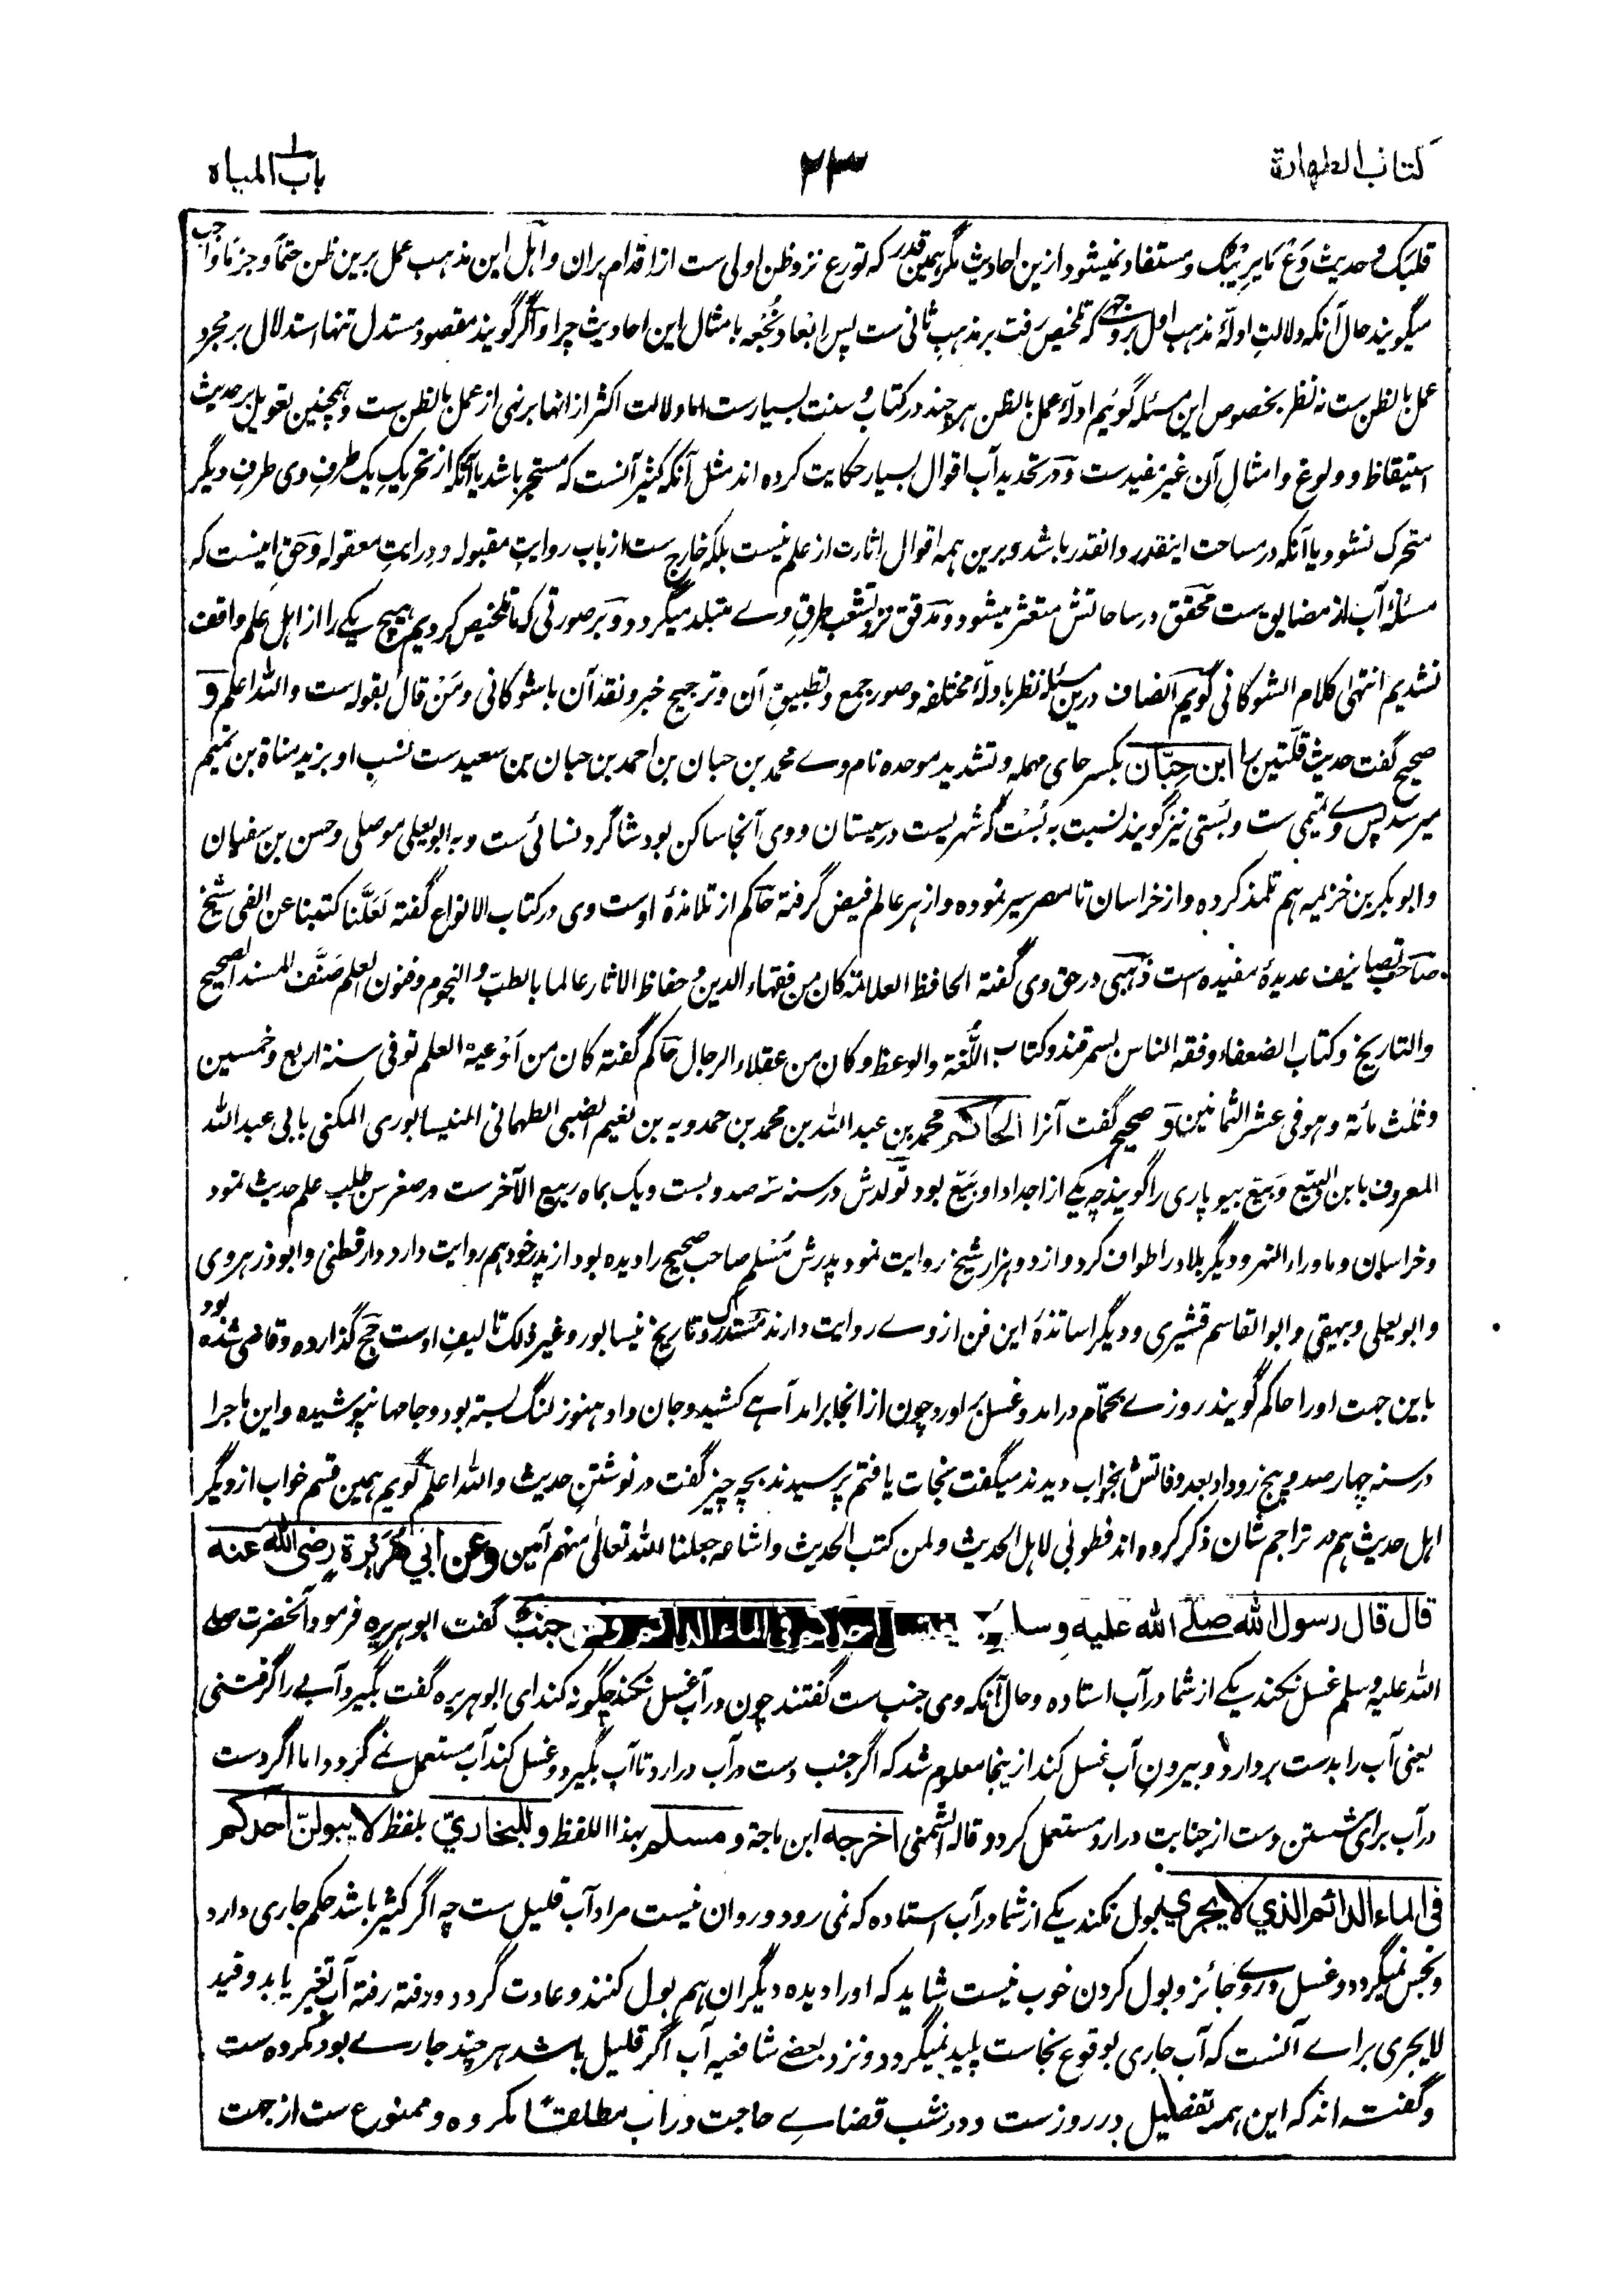 كتاب الطهارة
٢٣
باب المياه
قلبک و حدیث دَعْ مَا یَرِیْبُکَ و مستفاد نمیشود ازین احادیث مگر ہمین قدر کہ تورع نزد ظن اولی ست از اقدام بران و اہل این مذہب عمل برین ظن حتماً و جزماً واجب
میگویند حال آنکہ دلالتِ ادلۂ مذہب اول بر وجہی کہ تلخیص رفت بر مذہبِ ثانی ست پس ابعاد نُجْعہ بامثال این احادیث چرا و اگر گویند مقصود مستدل تنہا استدلال بر مجرد
عمل بالظن ست نہ نظر بخصوص این مسئلہ گوئیم ادلۂ عمل بالظن ہر چند در کتاب و سنت بسیارست اما دلالت اکثر ازانہا بر نہی از عمل بالظن ست و ہمچنین تعویل بر حدیث
استیقاظ و ولوغ و امثالِ آن غیر مفیدست و در تحدید آب اقوال بسیار حکایت کردہ اند مثل آنکہ کثیر آنست کہ مستبحر باشد یا آنکہ از تحریکِ یک طرفِ وی طرفِ دیگر
متحرک نشود یا آنکہ در مساحت اینقدر و انقدر باشد و برین ہمہ اقوال اثارت از علم نیست بلکہ خارج ست از باب روایتِ مقبولہ و درایتِ معقولہ و حق اینست کہ
مسئلۂ آب از مضایق ست محقق در ساحاتش متعثر میشود و مدقق نزد تشعب طرقِ وے متبلد میگردد و بر صورتی کہ ما تلخیص کردیم ہیچ یکے را از اہل علم واقف
نشدیم انتہی کلام الشوکانی گویم انصاف درین مسئلہ نظر بادلۂ مختلفہ و صور جمع و تطبیقِ آن و ترجیح خبر و نقد آن باشوکانی و مَنْ قال بقولہ است واللہ اعلم و
صحیح گفت حدیث قلتین را ابن حِبّان بکسر حای مہملہ و تشدید موحدہ نام وے محمد بن حبان بن احمد بن حبان بن سعیدست نسبِ او بزید مناة بن تمیم
میرسد پس وے تمیمی ست و بُستی نیز گویند نسبت بہ بُسْت کہ شہریست در سیستان و وی آنجا ساکن بود شاگرد نسائی ست و بہ ابو یعلی موصلی و حسن بن سفیان
و ابوبکر بن خزیمہ ہم تلمذ کردہ و از خراسان تا مصر سیر نمودہ و از ہر عالم فیض گرفتہ حاکم از تلامذۂ اوست وی در کتاب الانواع گفتہ لَعَلَّنا کتبنا عن الفی شیخ
صاحب تصانیف عدیدۂ مفیدہ است ذہبی در حق وی گفتہ الحافظ العلامة کان من فقہاء الدین و حفاظ الآثار عالما بالطبّ والنجوم وفنون العلم صَنَّف المسند الصحیح
والتاریخ وکتاب الضعفاء وفقہ الناس بسمرقند وکتاب اللُّغة والوعظ وکان من عقلاء الرجال حاکم گفتہ کان من اَوْعیة العلم توفی سنة اربع وخمسین
وثلث مائة وہو فی عشر الثمانین و صحیح گفت آنرا الحاکم محمد بن عبداللہ بن محمد بن حمدویہ بن نعیم الضبی الطہمانی النیسابوری المکنی بابی عبداللہ
المعروف بابن البیّع وبیّع بیوپاری را گویند چہ یکے از اجداد او بیّع بود تولدش در سنہ سہ صد و بست و یک بماہ ربیع الآخرست در صغر سن طلب علم حدیث نمود
و خراسان و ماوراء النہر و دیگر بلاد را طواف کرد و از دو ہزار شیخ روایت نمود پدرش مُسْلم صاحب صحیح را دیدہ بود از پدر خود ہم روایت دارد دارقطنی و ابوذر ہروی
و ابو یعلی و بیہقی و ابوالقاسم قشیری و دیگر اساتذۂ این فن از وے روایت دارند مستدرک و تاریخ نیسابور و غیر ذلک تالیفِ اوست حج گذاردہ و قاضی شدہ بود
باین جہت اورا حاکم گویند روزے بحمّام درامد و غسل براورد چون از انجا برامد آہے کشید و جان داد ہنوز لنگ بستہ بود و جامہا نپوشیدہ و این ماجرا
در سنہ چہار صد و پنج رو داد بعد وفاتش بخواب دیدند میگفت نجات یافتم پرسیدند بچہ چیز گفت در نوشتن حدیث واللہ اعلم گویم ہمین قسم خواب از دیگر
اہل حدیث ہم در تراجم شان ذکر کردہ اند فطوبٰی لاہل الحدیث ولمن کتب الحدیث واشاعہ جعلنا اللہ تعالیٰ منہم آمین وعن أبي هريرة رضی الله عنه
قال قال رسول الله صلى الله عليه وسلم جنب گفت ابوہریرہ فرمود آنحضرت صلے
اللہ علیہ وسلم غسل نکند یکے از شما در آب استادہ و حال آنکہ وی جنب ست گفتند چون در آب غسل نکند چگونہ کند ای ابوہریرہ گفت بگیرد آبے را گرفتنی
یعنی آب را بدست بردارد و بیرون آب غسل کند ازینجا معلوم شد کہ اگر جنب دست در آب درارد تا آب بگیرد و غسل کند آب مستعمل نے گردد اما اگر دست
در آب برای شستن دست از جنابت درارد مستعمل گردد قالہ الشمنی اخرجه ابن ماجة و مسلم بہذا اللفظ و للبخاريّ بلفظ لا يبولنّ أحدكم
في الماء الدائم الذي لا يجري بول نکند یکے از شما در آب استادہ کہ نمی رود و روان نیست مراد آب قلیل ست چہ اگر کثیر باشد حکم جاری دارد
و نجس نمیگردد و غسل دروے جائز و بول کردن خوب نیست شاید کہ اورا دیدہ دیگران ہم بول کنند و عادت گردد و رفتہ رفتہ آب تغیر یابد و قید
لایجری براے آنست کہ آب جاری بوقوع نجاست پلید نمیگردد و نزد بعضے شافعیہ آب اگر قلیل باشد ہر چند جارے بود مکروہ ست
و گفتہ اند کہ این ہمہ تفضیل در روزست و در شب قضاے حاجت در اب مطلقًا مکروہ و ممنوع ست از جہت